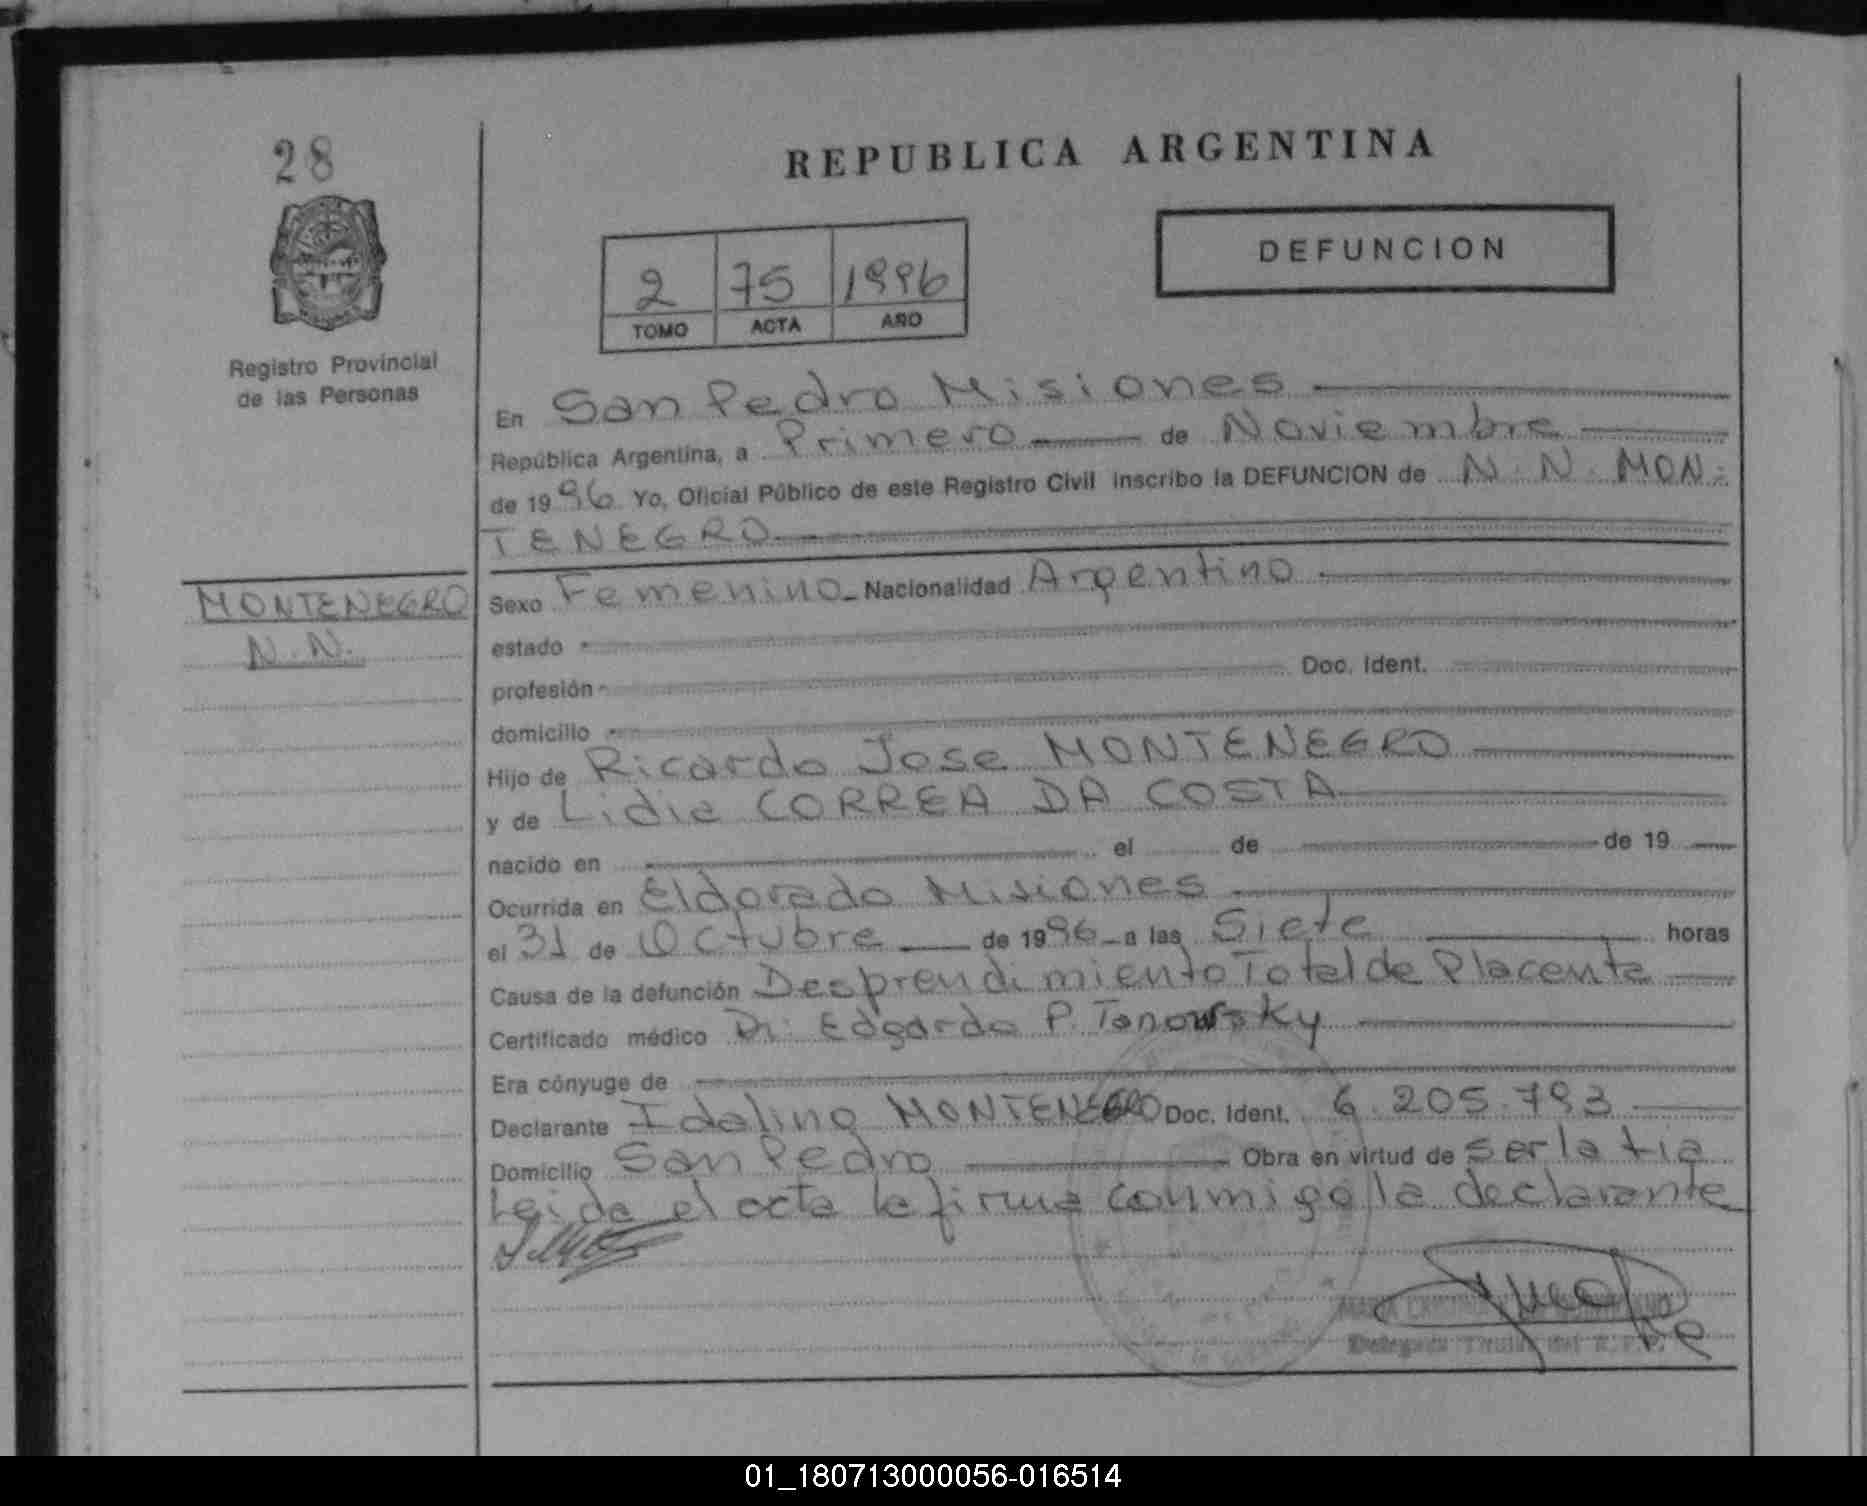 28
REPUBLICA ARGENTINA
DEFUNCION
2 75 1996
TOMO ACTA AÑO
Registro Provincial
de las Personas
En San Pedro Misiones
República Argentina, a Primero de Noviembre
de 1996 Yo, Oficial Público de este Registro Civil inscribo la DEFUNCION de N. N. MON-
TENEGRO
MONTENEGRO
N. N.
Sexo Femenino Nacionalidad Argentino
estado
profesión Doc. Ident.
domicilio
Hijo de Ricardo Jose MONTENEGRO
y de Lidia CORREA DA COSTA
nacido en el de de 19
Ocurrida en Eldorado Misiones
el 31 de Octubre de 1996 a las Siete horas
Causa de la defunción Desprendimiento Total de Placenta
Certificado médico Dr. Edgardo P. Tanowsky
Era cónyuge de
Declarante Idalina MONTENEGRO Doc. Ident. 6.205.793
Domicilio San Pedro Obra en virtud de ser la tia
Leida el acta la firma conmigo la declarante
Delegada Titular del R.P.P.
01_180713000056-016514